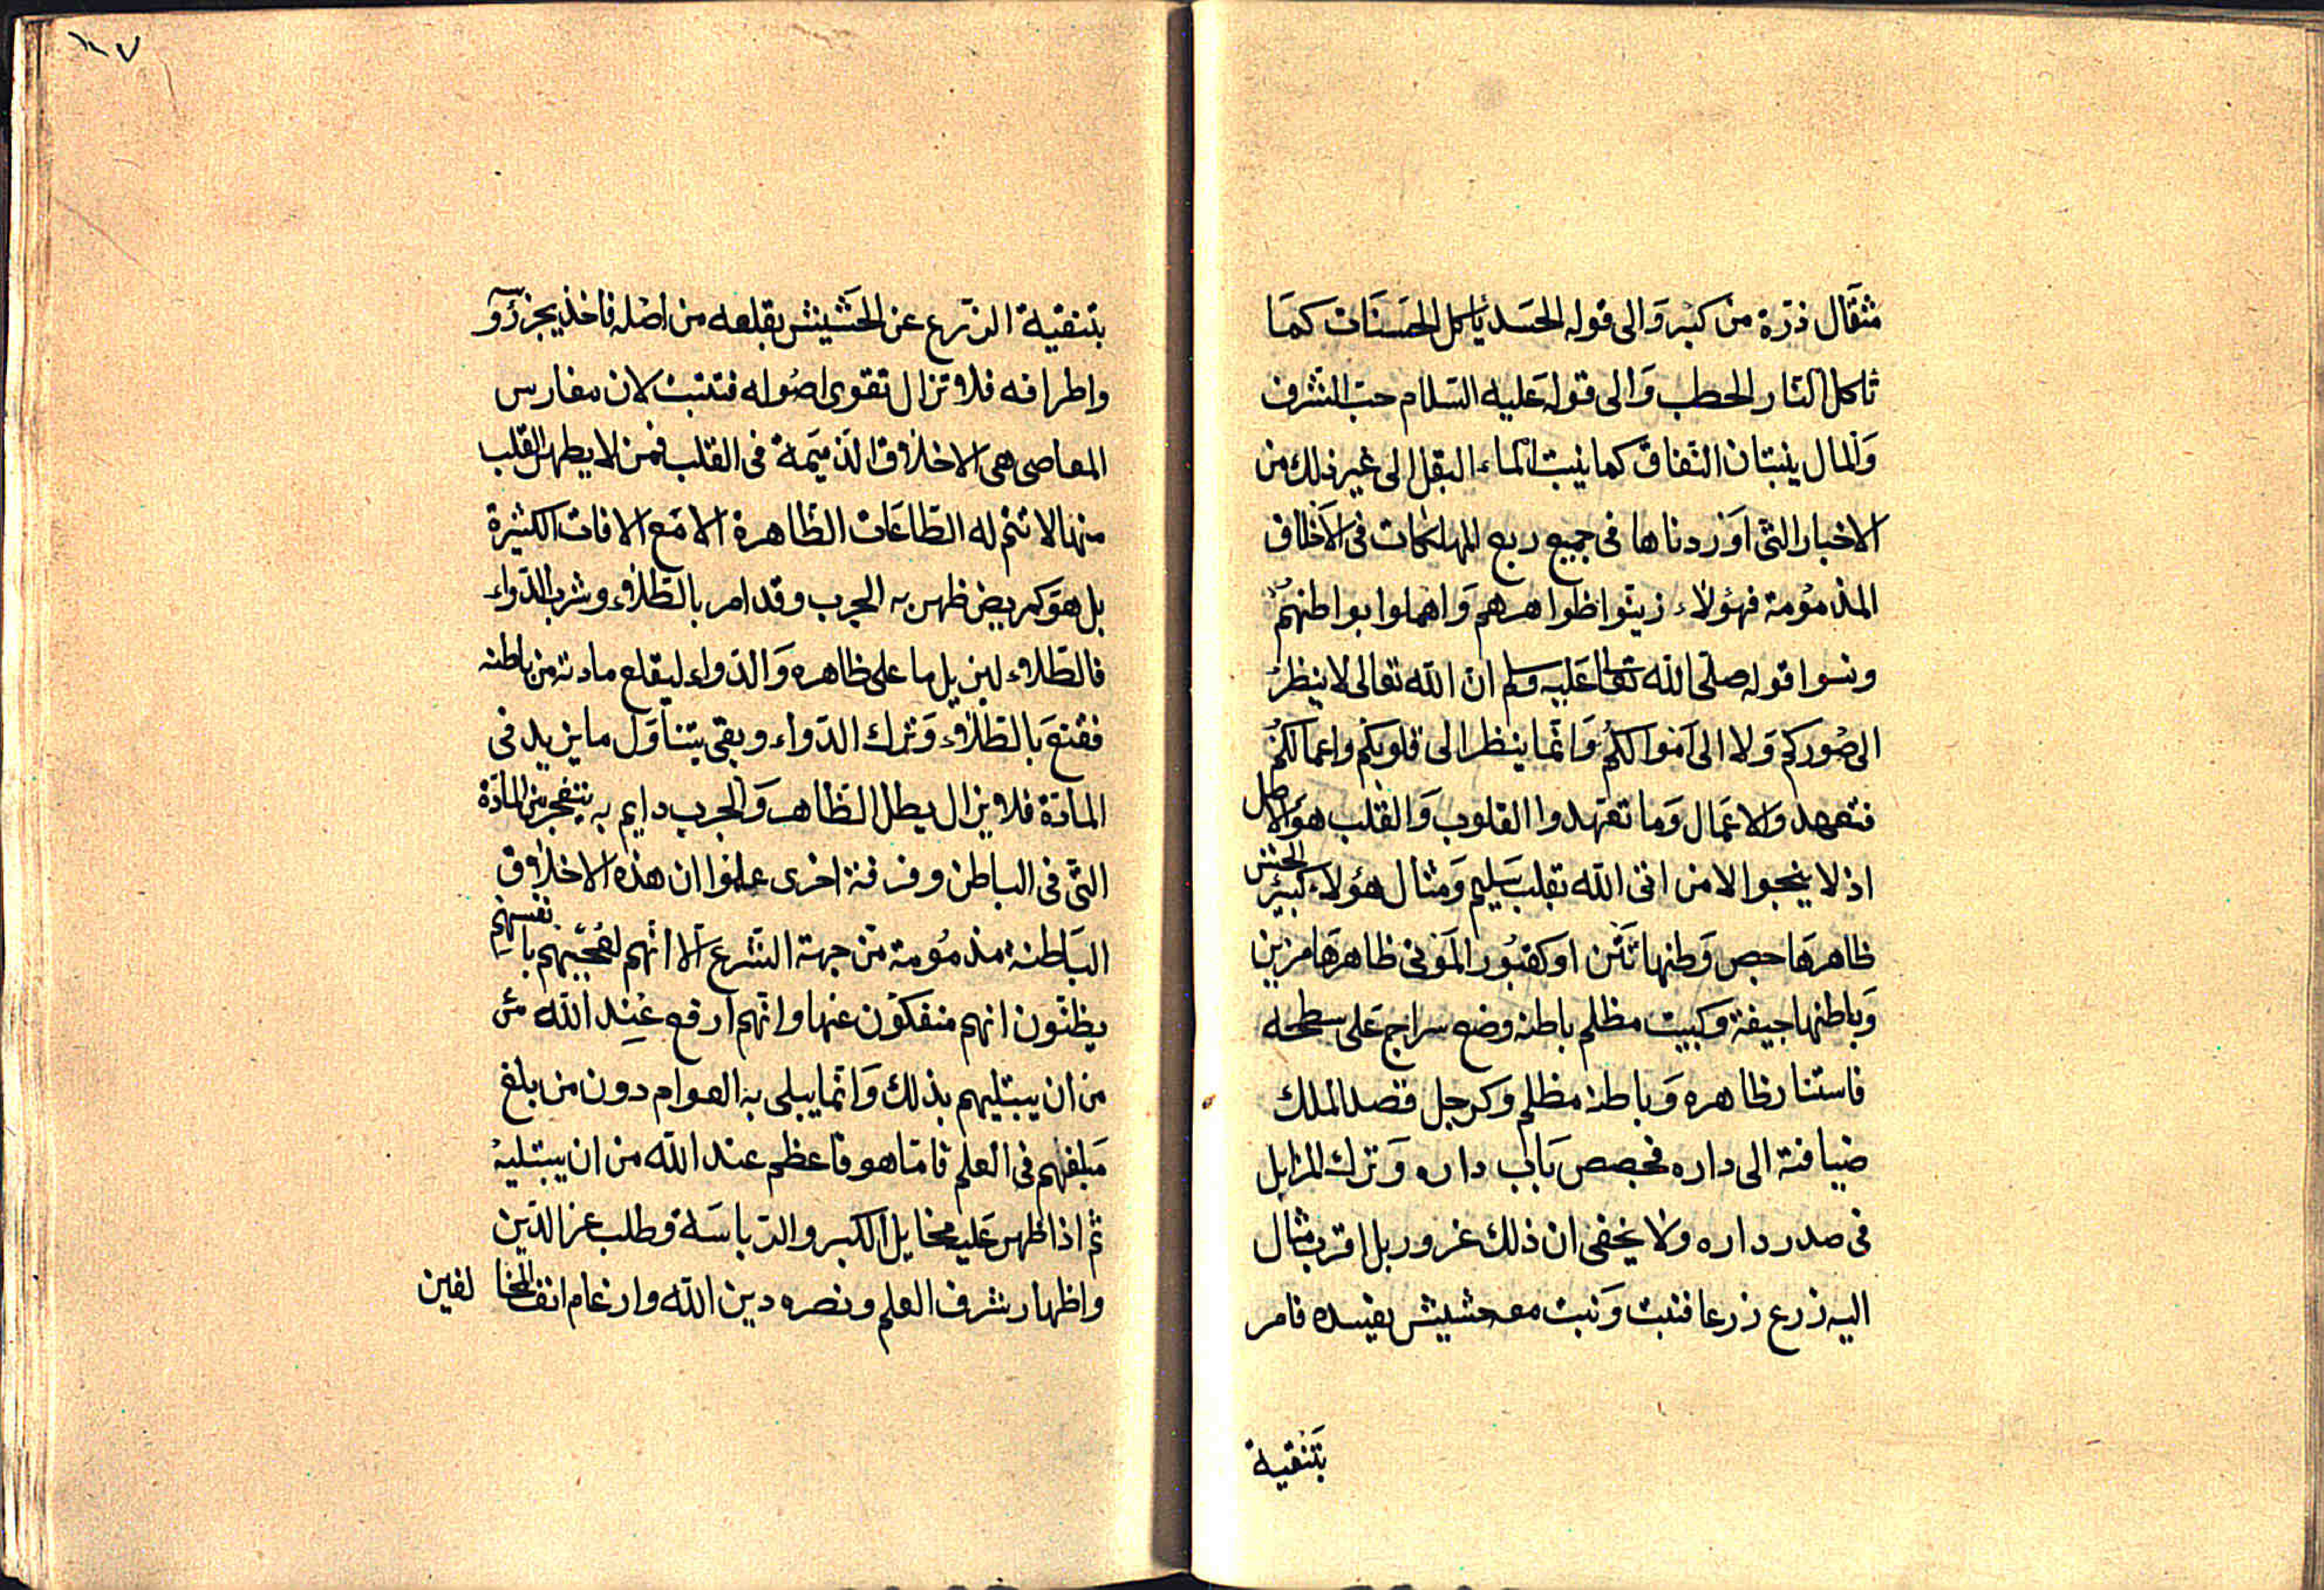 مثقال ذرة من كبر والى قوله الحسد ياكل الحسنات كما
تاكل النار الحطب والى قوله عليه السلام حب الشرف
والمال ينبتان النفاق كما ينبت الماء البقل الى غير ذلك من
الاخبار التى اوردناها فى جميع ربع المهلكات فى الاخلاق
المذمومة فهؤلاء زينوا ظواهرهم واهملوا بواطنهم
ونسوا قوله صلى الله تعالى عليه وسلم ان الله تعالى لا ينظر
الى صوركم ولا الى اموالكم وانما ينظر الى قلوبكم واعمالكم
فتعهدوا الاعمال وما تعهدوا القلوب والقلب هو الاصل
اذ لا ينجوا الا من اتى الله بقلب سليم ومثال هؤلاء كبئر الحش
ظاهرها جص وطنها نتن او كقبور الموتى ظاهرها مزين
وباطنها جيفة وكبيت مظلم باطنه وضع سراج على سطحه
فاستنار ظاهره وباطنه مظلم وكرجل قصد الملك
ضيافته الى داره فجصص باب داره وترك المزابل
فى صدر داره ولا يخفى ان ذلك غرور بل اقرب مثال
اليه زرع زرعا فنبت ونبت معه حشيش يفسده فامر
بتنقية
١٠٧
بتنقية الزرع عن الحشيش بقلعه من اصله فاخذ يجز رؤ
واطرافه فلا تزال تقوى اصوله فتنبت لان مغارس
المعاصى هى الاخلاق الذميمة فى القلب فمن لا يطهر القلب
منها لا تتم له الطاعات الظاهرة الا مع الافات الكثيرة
بل هو كمريض ظهر به الجرب وقد امر بالطلاء وشرب الدواء
فالطلاء ليزيل ما على ظاهره والدواء ليقلع مادته من باطنه
فقنع بالطلاء وترك الدواء وبقى يتناول ما يزيد فى
المادة فلا يزال يطل الظاهر والجرب دايم به يتفجر من المادة
التى فى الباطن وفرقة اخرى علموا ان هذه الاخلاق
الباطنة مذمومة من جهة الشرع الا انهم لعجبهم بانفسهم
يظنون انهم منفكون عنها وانهم ارفع عند الله من
من ان يبتليهم بذلك وانما يبلى به العوام دون من بلغ
مبلغهم فى العلم فاما هو فاعظم عند الله من ان يبتليه
ثم اذا ظهر عليه مخايل الكبر والرياسة وطلب عز الدين
واظهار شرف العلم ونصره دين الله وارغام انف المخا لفين